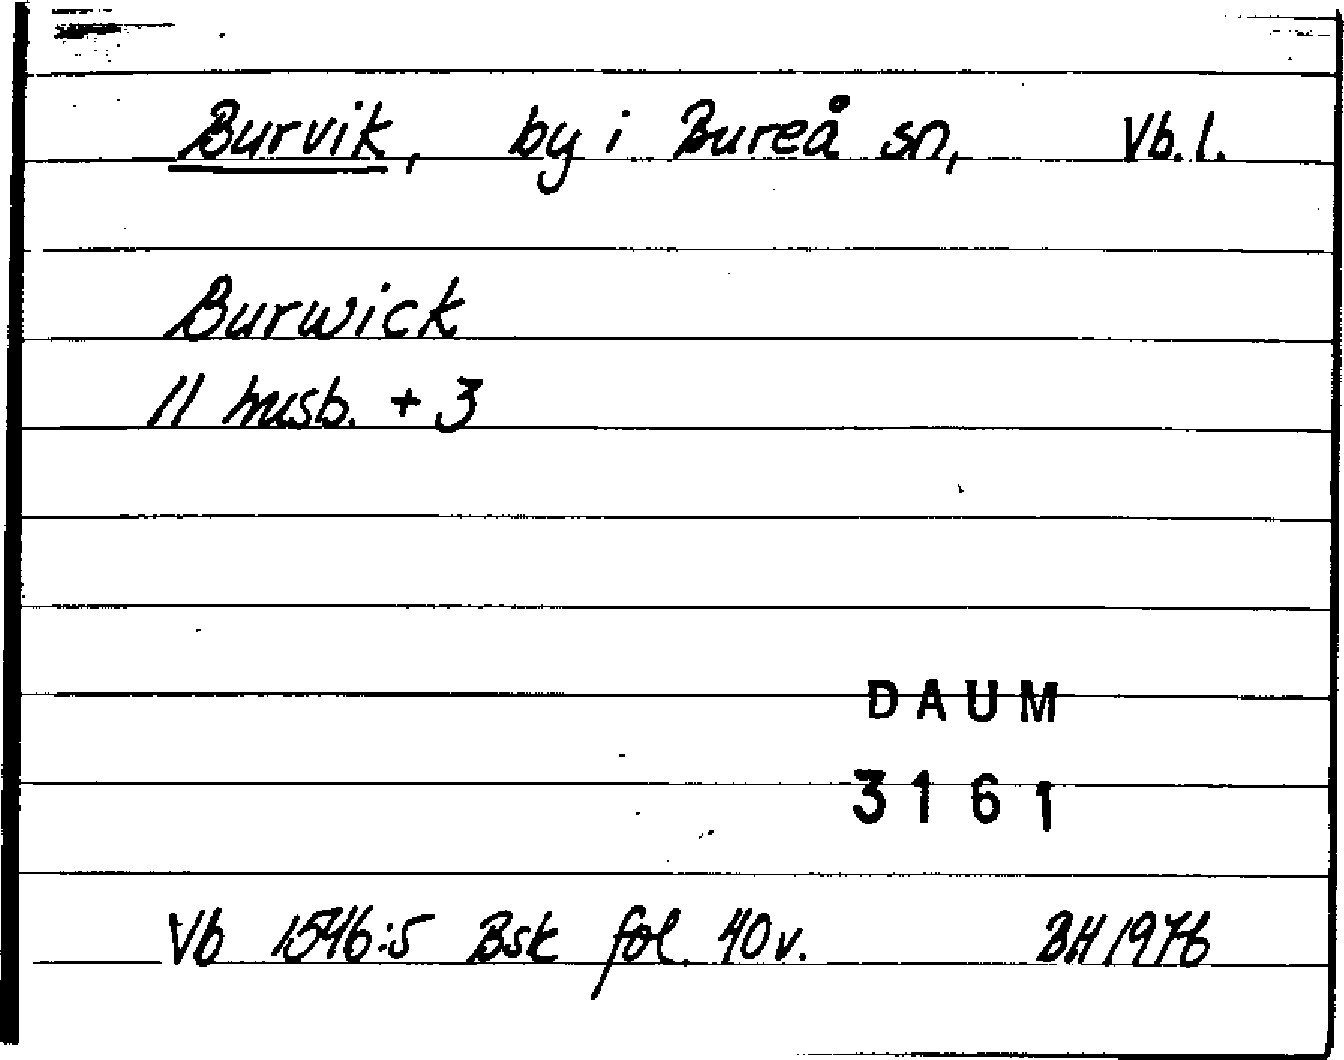 Burvik, by i Bureå sn, Vb. l.
Burwick
11 husb. + 3
DAUM
3161
Vb 1546:5 Bsk fol. 40v. BH 1976